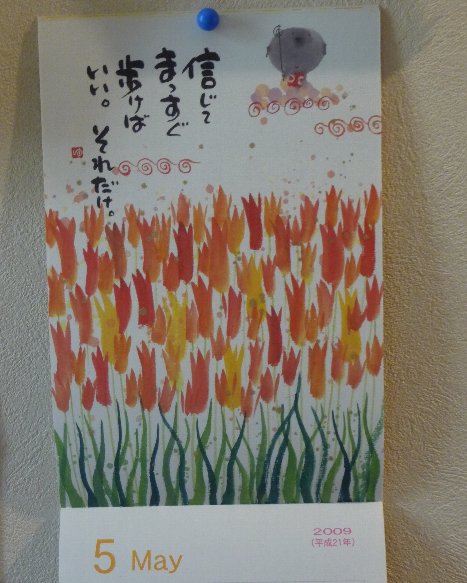 信じて
まっすぐ
歩けば
いい。それだけ。
2009
(平成21年)
5 May